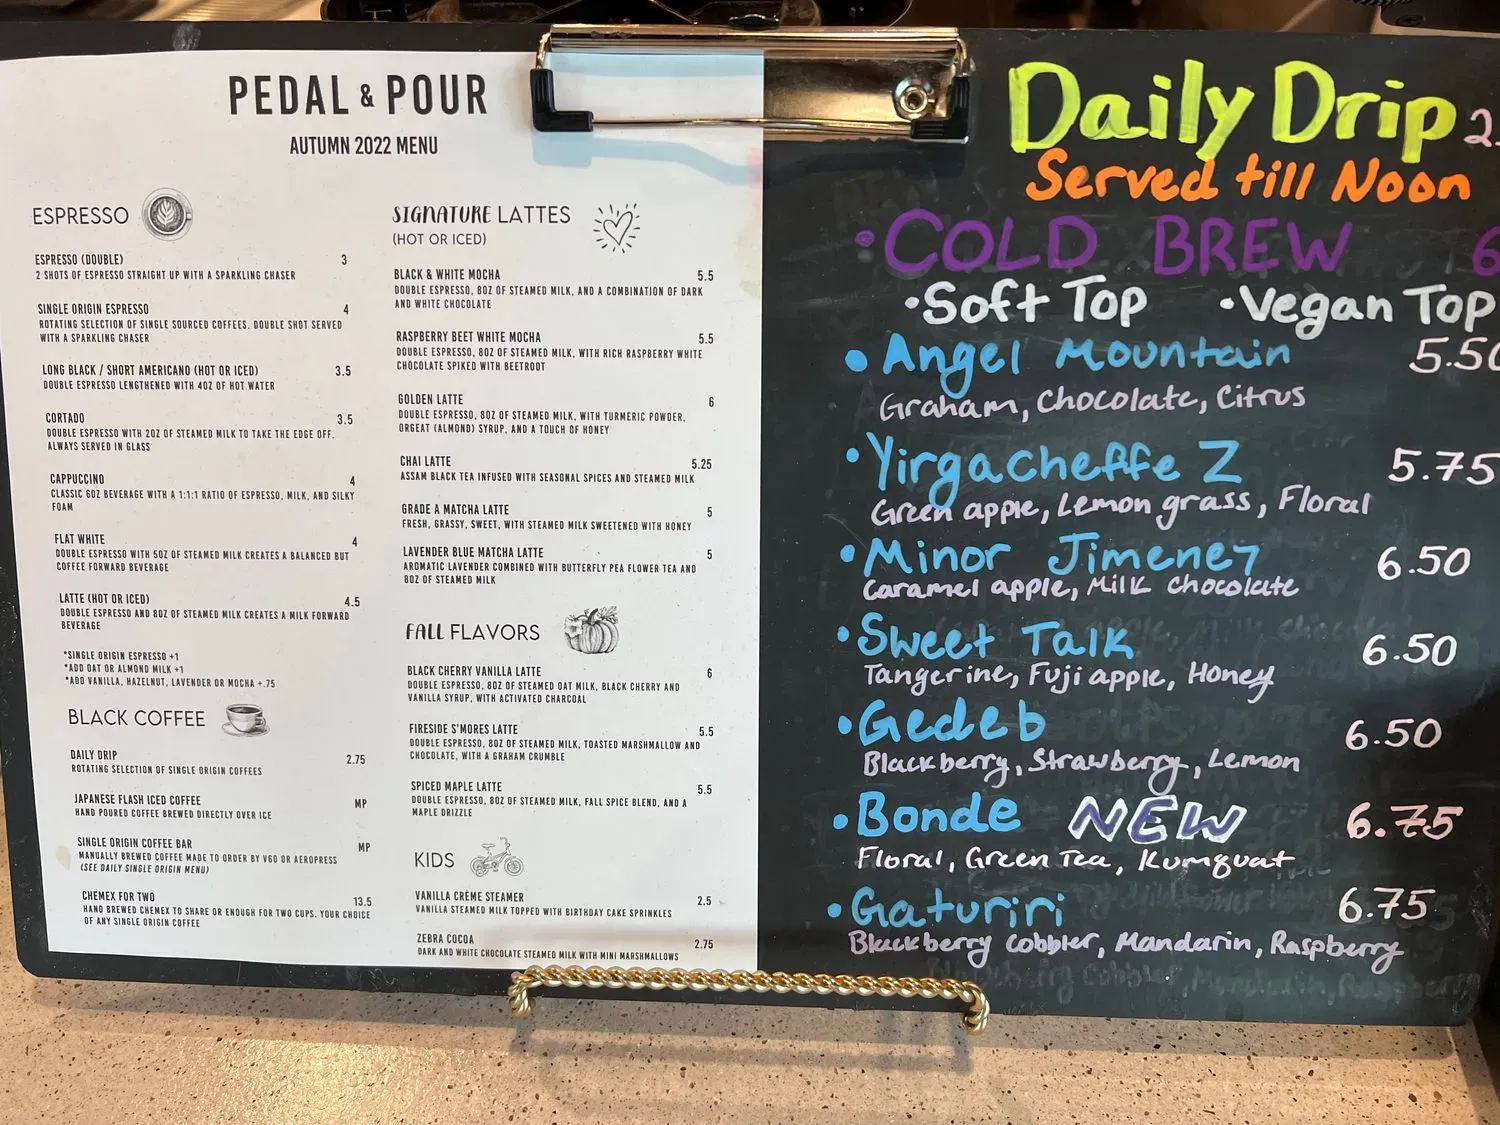 PEDAL & POUR
AUTUMN 2022 MENU
ESPRESSO
ESPRESSO (DOUBLE) 3
2 SHOTS OF ESPRESSO STRAIGHT UP WITH A SPARKLING CHASER
SINGLE ORIGIN ESPRESSO 4
ROTATING SELECTION OF SINGLE SOURCED COFFEES. DOUBLE SHOT SERVED
WITH A SPARKLING CHASER
LONG BLACK / SHORT AMERICANO (HOT OR ICED) 3.5
DOUBLE ESPRESSO LENGTHENED WITH 4OZ OF HOT WATER
CORTADO 3.5
DOUBLE ESPRESSO WITH 2OZ OF STEAMED MILK TO TAKE THE EDGE OFF.
ALWAYS SERVED IN GLASS
CAPPUCCINO 4
CLASSIC 6OZ BEVERAGE WITH A 1:1:1 RATIO OF ESPRESSO, MILK, AND SILKY
FOAM
FLAT WHITE 4
DOUBLE ESPRESSO WITH 5OZ OF STEAMED MILK CREATES A BALANCED BUT
COFFEE FORWARD BEVERAGE
LATTE (HOT OR ICED) 4.5
DOUBLE ESPRESSO AND 8OZ OF STEAMED MILK CREATES A MILK FORWARD
BEVERAGE
*SINGLE ORIGIN ESPRESSO +1
*ADD OAT OR ALMOND MILK +1
*ADD VANILLA, HAZELNUT, LAVENDER OR MOCHA +.75
BLACK COFFEE
DAILY DRIP 2.75
ROTATING SELECTION OF SINGLE ORIGIN COFFEES
JAPANESE FLASH ICED COFFEE MP
HAND POURED COFFEE BREWED DIRECTLY OVER ICE
SINGLE ORIGIN COFFEE BAR MP
MANUALLY BREWED COFFEE MADE TO ORDER BY V60 OR AEROPRESS
(SEE DAILY SINGLE ORIGIN MENU)
CHEMEX FOR TWO 13.5
HAND BREWED CHEMEX TO SHARE OR ENOUGH FOR TWO CUPS. YOUR CHOICE
OF ANY SINGLE ORIGIN COFFEE
SIGNATURE LATTES
(HOT OR ICED)
BLACK & WHITE MOCHA 5.5
DOUBLE ESPRESSO, 8OZ OF STEAMED MILK, AND A COMBINATION OF DARK
AND WHITE CHOCOLATE
RASPBERRY BEET WHITE MOCHA 5.5
DOUBLE ESPRESSO, 8OZ OF STEAMED MILK, WITH RICH RASPBERRY WHITE
CHOCOLATE SPIKED WITH BEETROOT
GOLDEN LATTE 6
DOUBLE ESPRESSO, 8OZ OF STEAMED MILK, WITH TURMERIC POWDER,
ORGEAT (ALMOND) SYRUP, AND A TOUCH OF HONEY
CHAI LATTE 5.25
ASSAM BLACK TEA INFUSED WITH SEASONAL SPICES AND STEAMED MILK
GRADE A MATCHA LATTE 5
FRESH, GRASSY, SWEET, WITH STEAMED MILK SWEETENED WITH HONEY
LAVENDER BLUE MATCHA LATTE 5
AROMATIC LAVENDER COMBINED WITH BUTTERFLY PEA FLOWER TEA AND
8OZ OF STEAMED MILK
FALL FLAVORS
BLACK CHERRY VANILLA LATTE 6
DOUBLE ESPRESSO, 8OZ OF STEAMED OAT MILK, BLACK CHERRY AND
VANILLA SYRUP, WITH ACTIVATED CHARCOAL
FIRESIDE S'MORES LATTE 5.5
DOUBLE ESPRESSO, 8OZ OF STEAMED MILK, TOASTED MARSHMALLOW AND
CHOCOLATE, WITH A GRAHAM CRUMBLE
SPICED MAPLE LATTE 5.5
DOUBLE ESPRESSO, 8OZ OF STEAMED MILK, FALL SPICE BLEND, AND A
MAPLE DRIZZLE
KIDS
VANILLA CRÈME STEAMER 2.5
VANILLA STEAMED MILK TOPPED WITH BIRTHDAY CAKE SPRINKLES
ZEBRA COCOA 2.75
DARK AND WHITE CHOCOLATE STEAMED MILK WITH MINI MARSHMALLOWS
Daily Drip 2.
Served till Noon
• COLD BREW 6
• Soft Top • Vegan Top
• Angel Mountain 5.50
Graham, Chocolate, Citrus
• Yirgacheffe Z 5.75
Green apple, Lemon grass, Floral
• Minor Jimenez 6.50
Caramel apple, Milk Chocolate
• Sweet Talk 6.50
Tangerine, Fuji apple, Honey
• Gedeb 6.50
Blackberry, Strawberry, Lemon
• Bonde NEW 6.75
Floral, Green Tea, Kumquat
• Gaturiri 6.75
Blackberry Cobbler, Mandarin, Raspberry